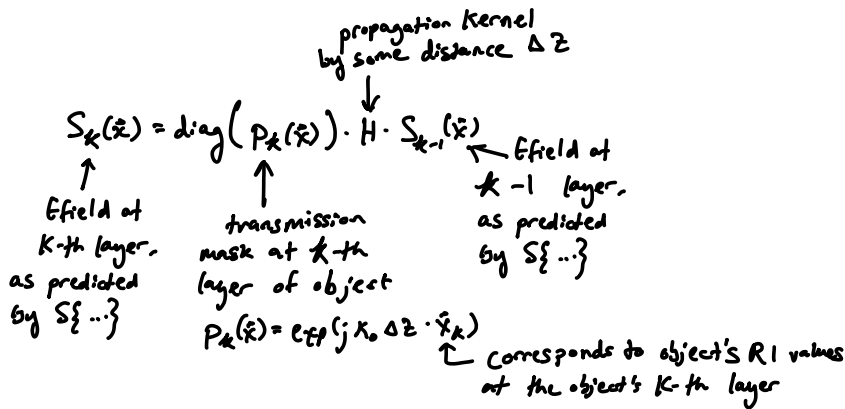 propagation kernel
by some distance Δz
S_k(x̂) = diag(P_k(x̂)) · H · S_{k-1}(x̂)
Efield at
k-th layer,
as predicted
by S{...}
transmission
mask at k-th
layer of object
P_k(x̂) = exp(j k₀ Δz · x̂_k)
Efield at
k-1 layer,
as predicted
by S{...}
corresponds to object's RI values
at the object's k-th layer